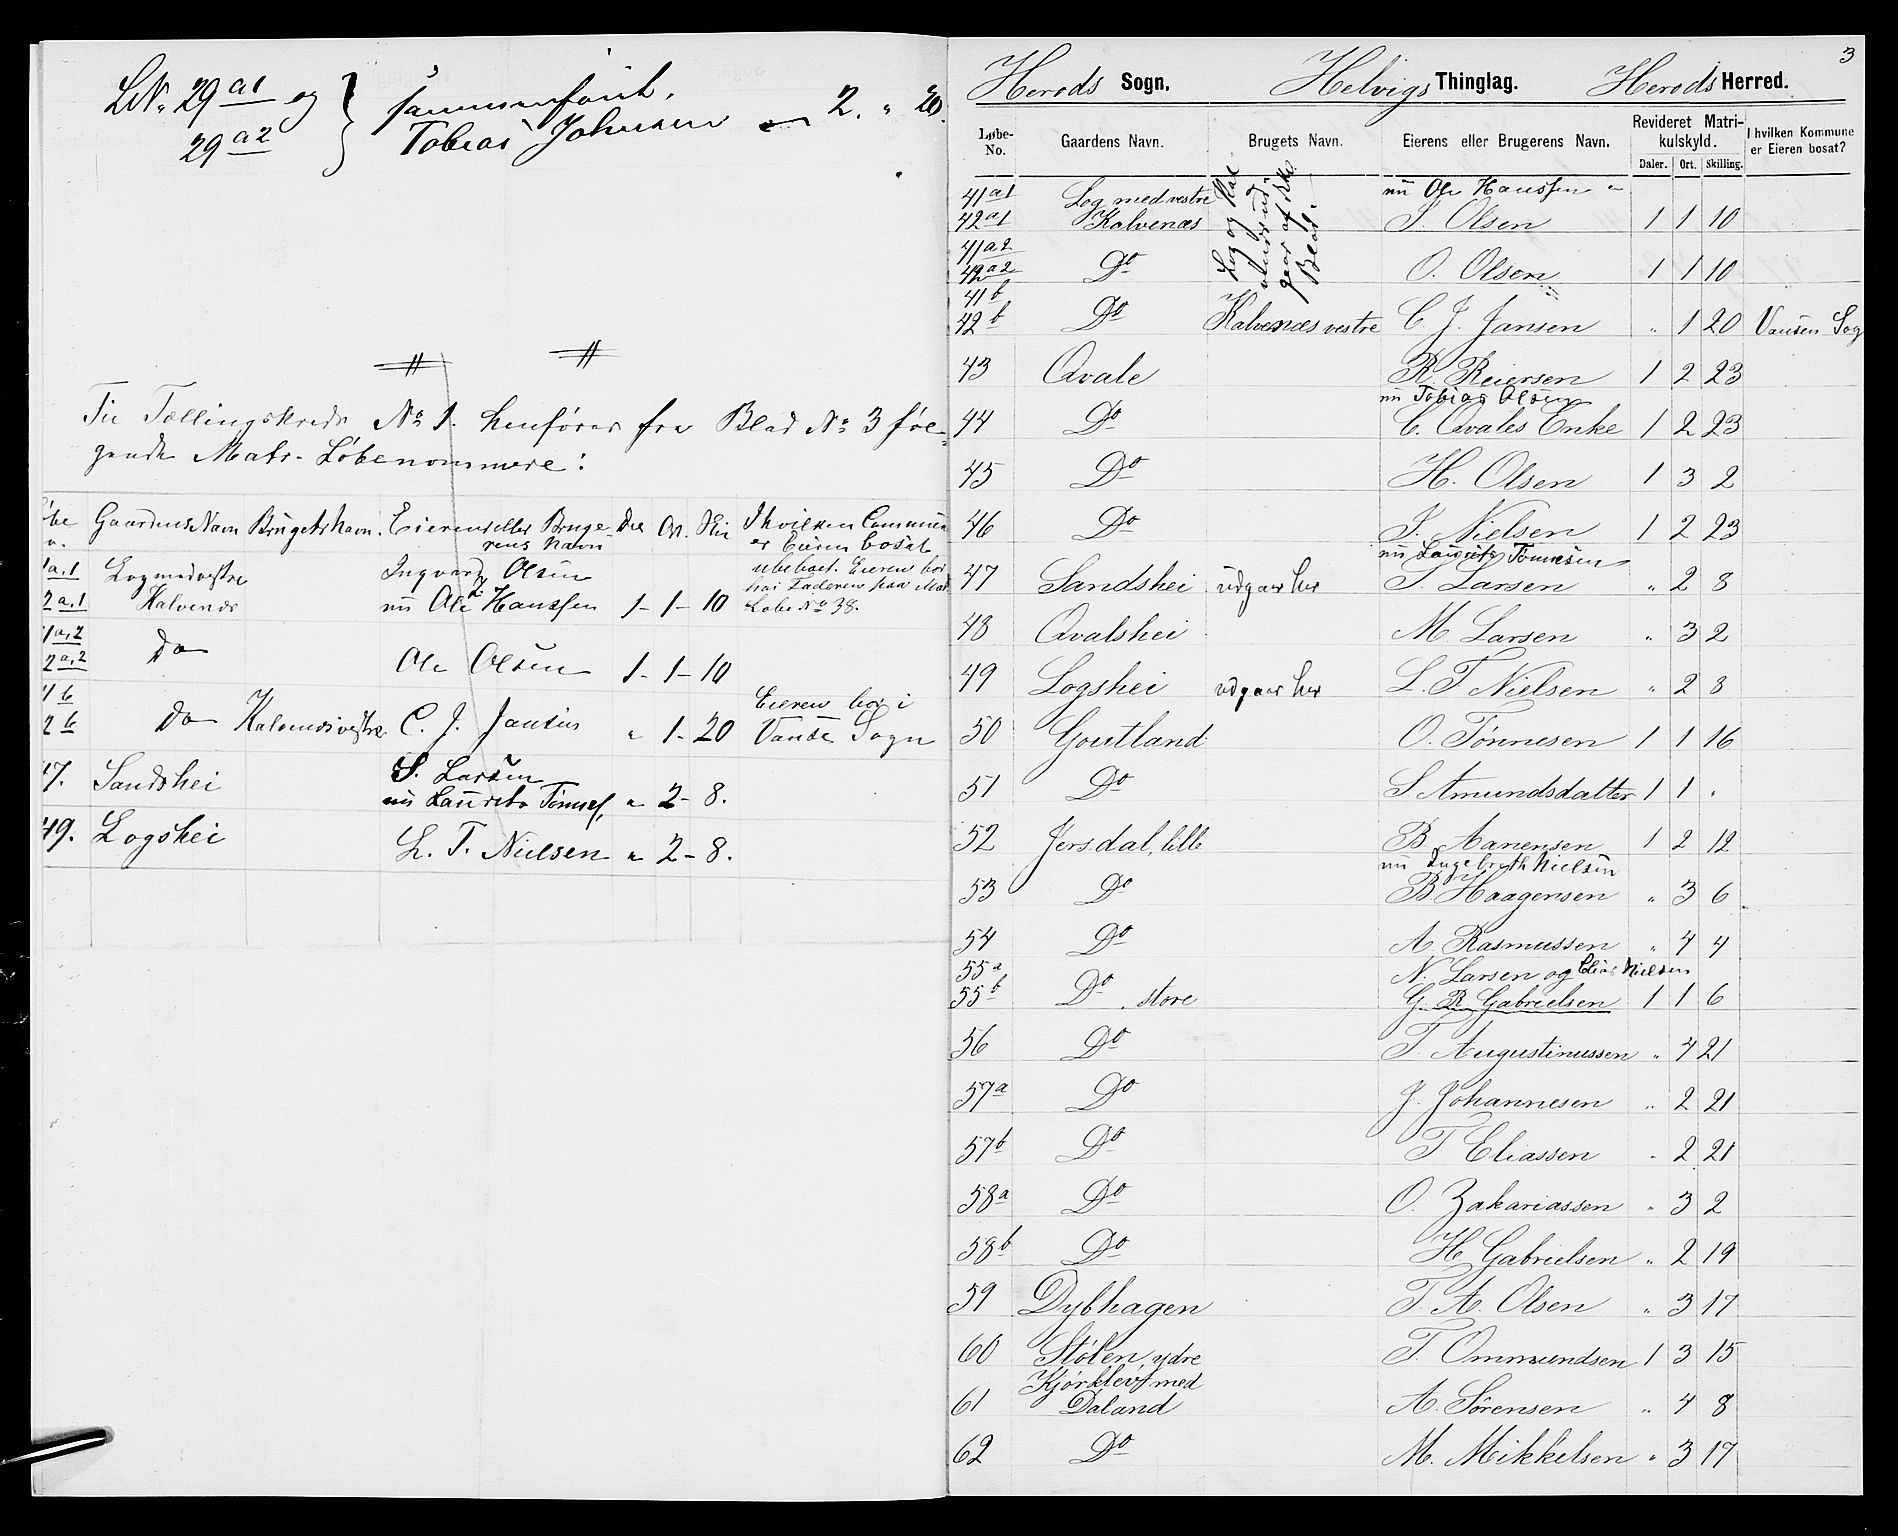 LNr. 29 a1 og
29 a2
sammenføiet.
Tobias Johnsen 2. " 20.
Til Tællingskreds No 1. henføres fra Blad No 3 føl-
gende Matr. Løbenommere:
Gaardens Navn Brugets Navn. Eierens eller Bruge-
rens Navn Or. I hvilken Commune
er Eieren bosat
a,1 Log med vestre Ingvard Olsen
2a,1 Kalvenæs nu Ole Hanssen 1 - 1 - 10
ubeboet. Eieren bor
hos Faderen paa Mat.
Løbe No 38.
1a,2
2a,2 Do Ole Olsen 1 - 1 - 10
1b
2b Do Kalvenæs vestre C. J. Jansen " 1 - 20
Eieren bor i
Vanse Sogn
7. Sandshei S. Larsen
nu Laurits Tønnes. " 2 - 8.
49. Logshei L. T. Nielsen " 2 - 8.
3
Herods Sogn. Helvigs Thinglag. Herods Herred.
Løbe-No. Gaardens Navn. Brugets Navn. Eierens eller Brugerens Navn. Revideret Matri-kulskyld. I hvilken Kommune er Eieren bosat?
Daler. Ort. Skilling.
41 a1 Log med vestre nu Ole Hanssen
42 a1 Kalvenæs S. Olsen 1 1 10
41 a2
42 a2 Do O. Olsen 1 1 10
41 b
42 b Do Kalvenæs vestre C. J. Jansen " 1 20 Vansen Sog
43 Qvale R. Reiersen 1 2 23
nu Tobias Olsen
44 Do C. Qvales Enke 1 2 23
45 Do H. Olsen 1 3 2
46 Do J. Nielsen 1 2 23
nu Laurits Tønnesen
47 Sandshei udgaar her S. Larsen " 2 8
48 Qvalshei M. Larsen " 3 2
49 Logshei udgaar her L. T. Nielsen " 2 8
50 Goutland O. Tønnesen 1 1 16
51 Do S. Amundsdatter 1 1 "
52 Jersdal, lille B. Aanensen 1 2 12
nu Ingebreth Nielsen
53 Do B. Haagensen " 3 6
54 Do A. Rasmussen " 4 4
55 a N. Larsen og Elias Nielsen
55 b Do, store G. R. Gabrielsen 1 1 6
56 Do T. Augustinussen " 4 21
57 a Do J. Johannesen " 2 21
57 b Do T. Eliassen " 2 21
58 a Do O. Zakariassen " 3 2
58 b Do H. Gabrielsen " 2 19
59 Dybhagen T. A. Olsen " 3 17
60 Stølen, ydre T. Ommundsen 1 3 15
Kjørklev med
61 Daland A. Sørensen " 4 8
62 Do M. Mikkelsen " 3 17